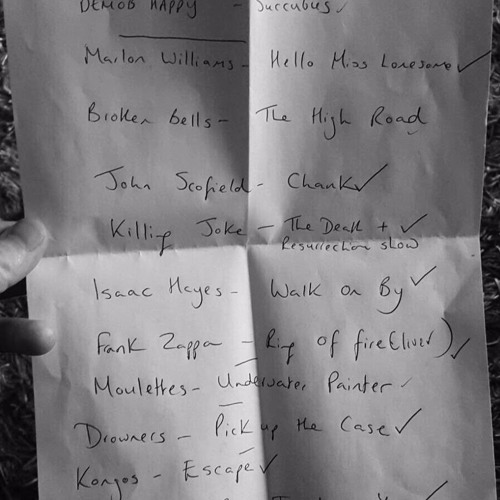 DEMOB HAPPY - Succubus ✓
Marlon Williams - Hello Miss Lonesome ✓
Broken bells - The High Road
John Scofield - Chank ✓
Killing Joke - The Death + ✓
Resurrection show
Isaac Hayes - Walk on By ✓
Frank Zappa - Ring of fire (live) ✓
Moulettes - Underwater Painter ✓
Drowners - Pick up the Case ✓
Kongos - Escape ✓